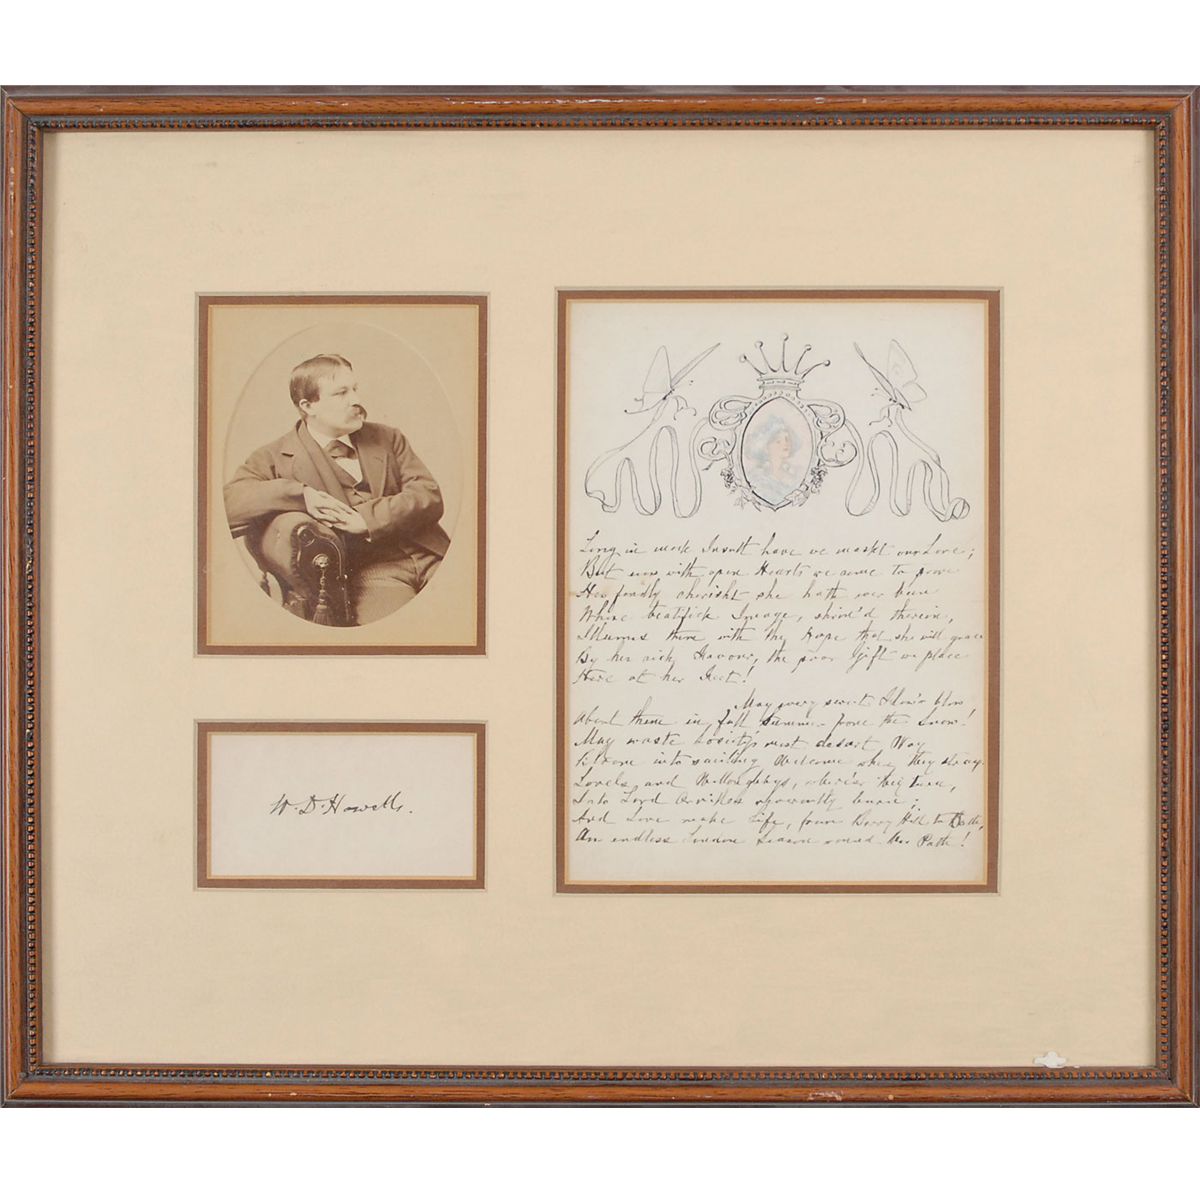 W. D. Howells.
Long in mock Insult have we maskt our Love;
But now with open Hearts we come to prove
How fondly cherisht she hath ever been
Whose beatifick Image, shrin'd therein,
Illumes them with the Hope that she will grace
By her rich Favour, the poor Gift we place
Here at her Feet!
May every sweetest blow
About them in full Summer from the Snow!
May waste Society's most desart Way
Bloome into smiling Welcome when they stray
Lovels and Willoughbys, where'er they turn,
Into Lord Orvilles
And Love make Life, from Berry Hill to
An endless London Season round Her Path!